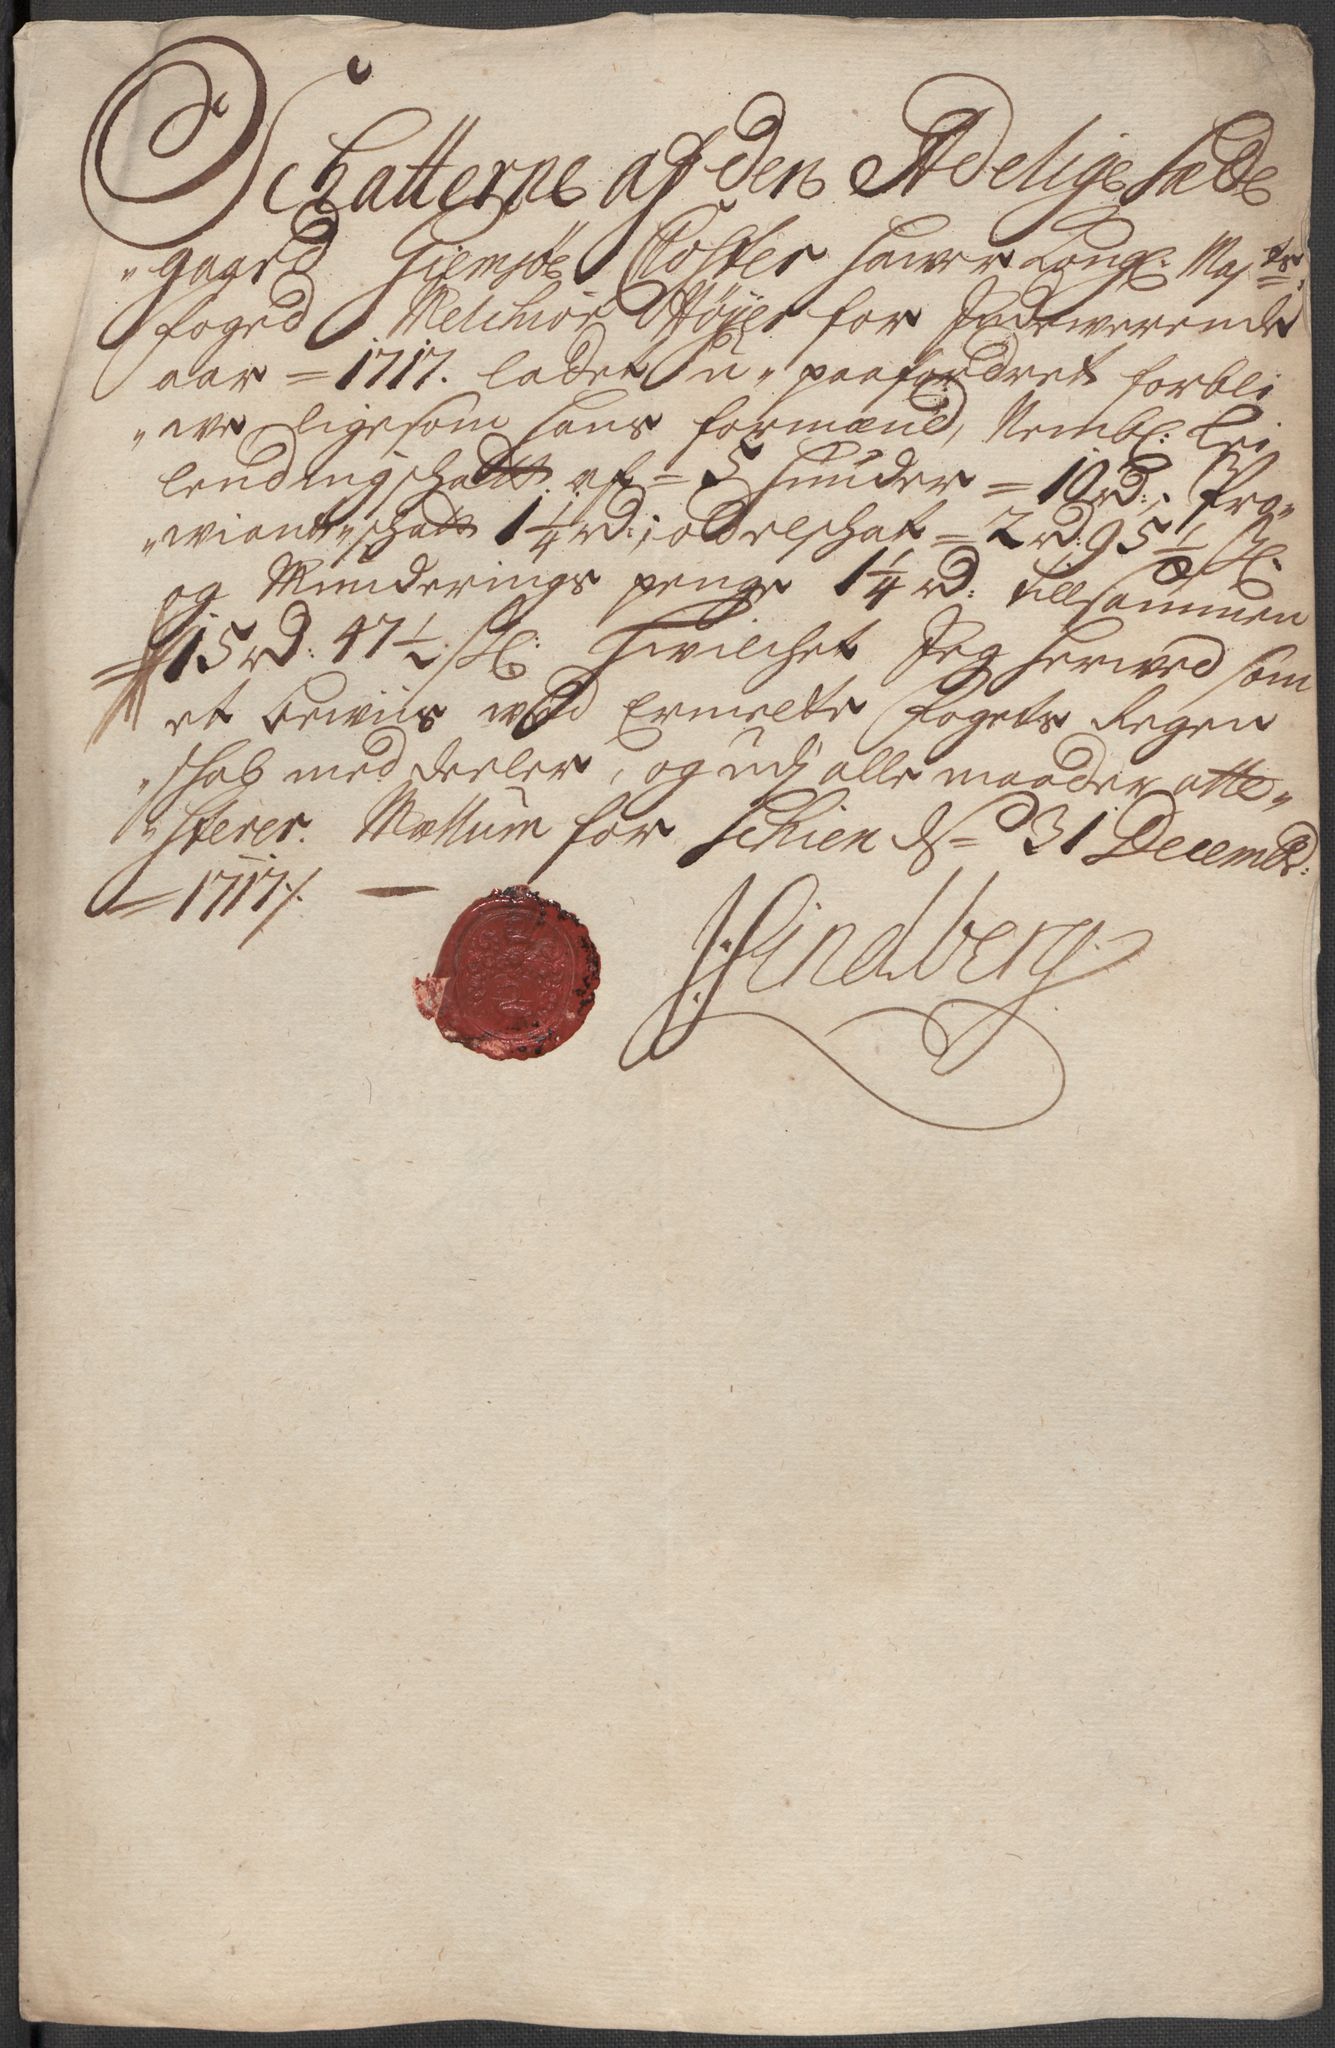 Schatterne af den Adelige sæde
"gaard Giemsøe Closter hawer Kongl: Mayts
foged Melchior Høyer for Indewerende
aar = 1717. ladet u-paafordret forbli
"we ligesom hans formænd, Nembl: Lei
lendingschatt af = 5 Hunder = 10 rd:, Pro-
"wiantschatt 1 1/4 rd:; odelschat = 2 rd: 95 1/2 s:
og Munderings penge 1 1/4 rd: tillsammen
= 15 rd: 47 1/2 s: Hwilchet Jeg herwed som
et bewiis wed Ermelte fogets Regen
"schab meddeeler, og udj alle maader atte-
"sterer. Mællum for Schien ds = 31 Decembr:
= 1717 /. —
H Lindberg